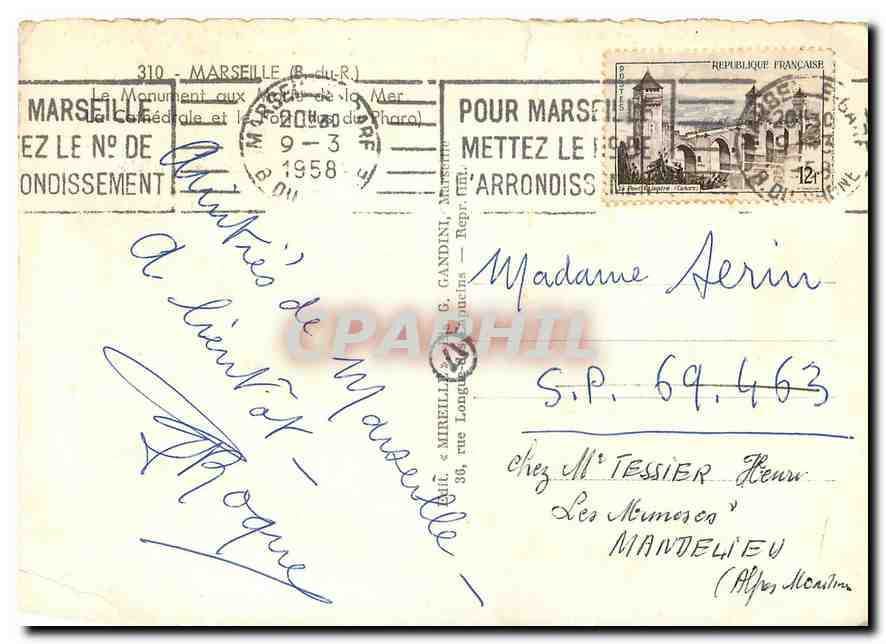 310 - MARSEILLE (B.-du-R.)
Le Monument aux Morts de la Mer
La Cathédrale et le Port (Vus du Pharo)
MARSEILLE
EZ LE Nº DE
ONDISSEMENT
MARSEILLE GARE
20H30
9-3
1958
B. DU
POUR MARSEILLE
METTEZ LE Nº DE
L'ARRONDISSEMENT
POSTES
REPUBLIQUE FRANÇAISE
Le Pont Valentré (Cahors)
12f
Amitiés de Marseille -
A bientôt -
Roque
Edit. « MIREILLE » E. G. GANDINI, Marseille
36, rue Longue-des-Capucins — Repr. Int.
CPAPHIL
Madame Serin
S.P. 69.463
chez Mr TESSIER Henri
Les Mimosas
MANDELIEU
(Alpes Maritim